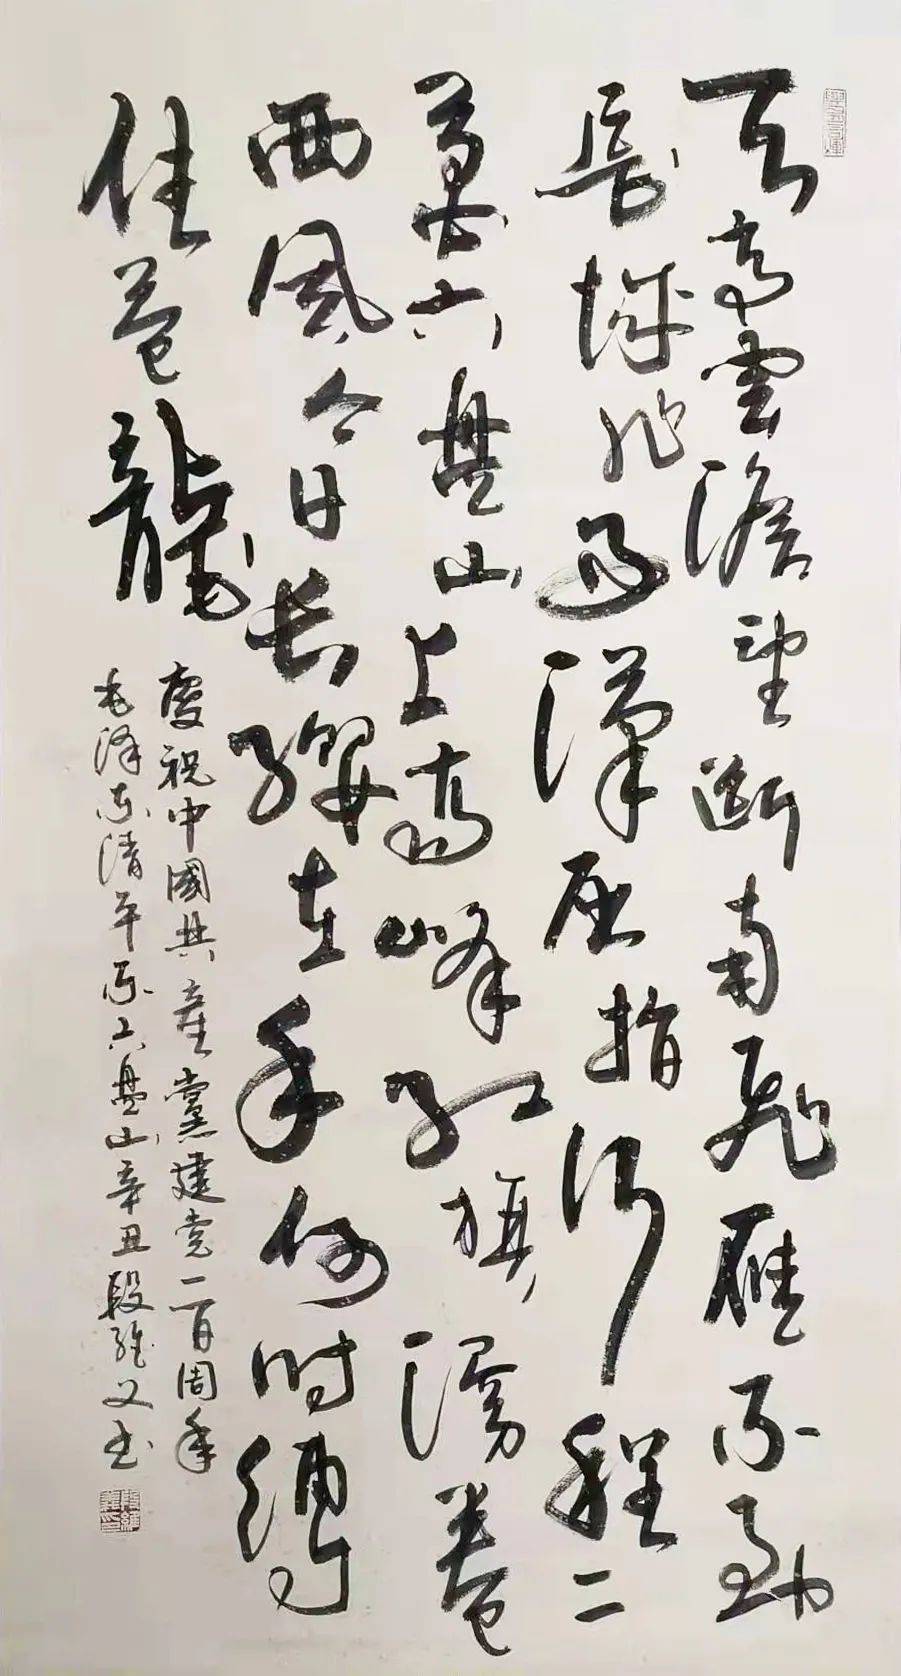 天高雲澹望斷南飛雁不到
長城非好漢屈指行程二
萬六盤山上高峰红旗漫卷
西風今日長纓在手何时縛
住蒼龍
慶祝中國共產黨建党一百周年
毛泽东清平乐六盘山辛丑段維义书
段維義印